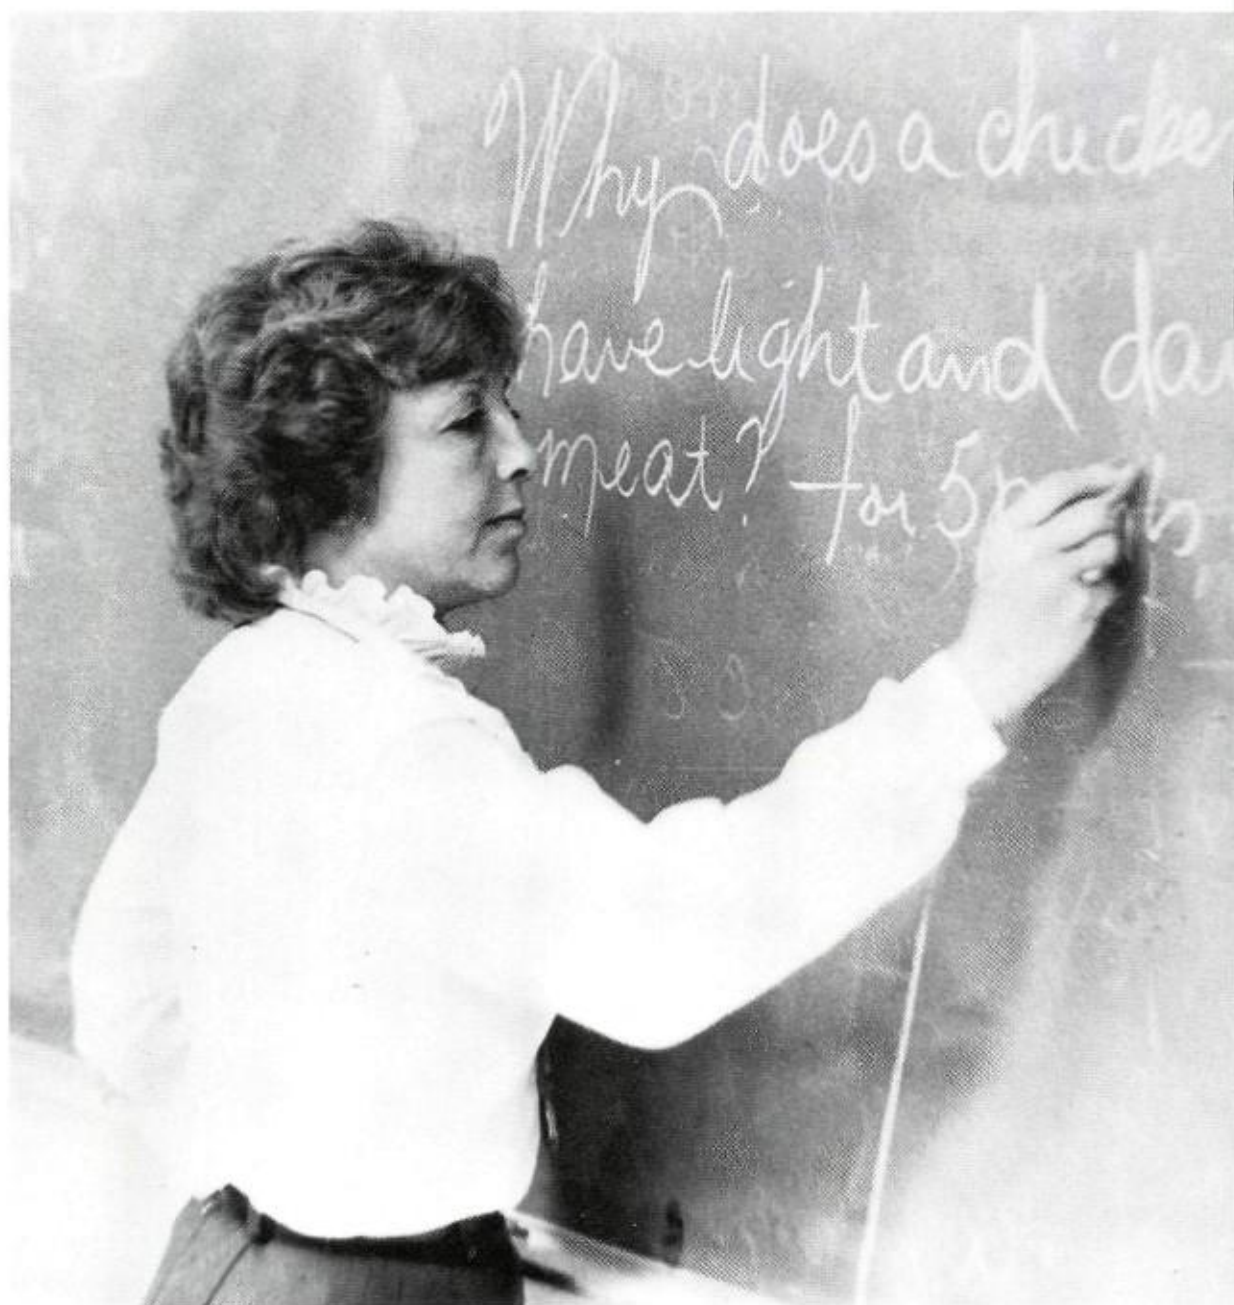 Why does a chicke
have light and da
meat? for 5